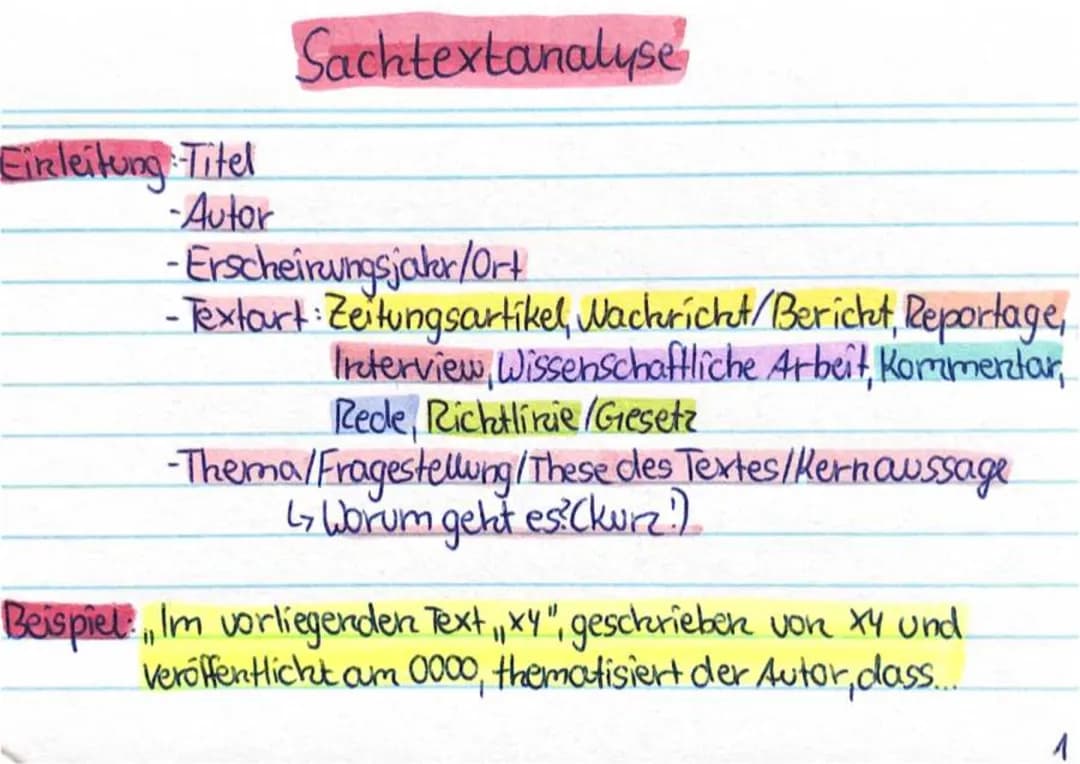 Sachtextanalyse
Einleitung:-Titel
-Autor
-Erscheinungsjahr/Ort
-Textart: Zeitungsartikel, Nachricht/Bericht, Reportage,
Interview, Wissenschaftliche Arbeit, Kommentar,
Rede, Richtlinie/Gesetz
-Thema/Fragestellung/These des Textes/Kernaussage
↳ Worum geht es? (kurz!)
Beispiel: „Im vorliegenden Text „xy", geschrieben von xy und
veröffentlicht am 0000, thematisiert der Autor, dass...
1